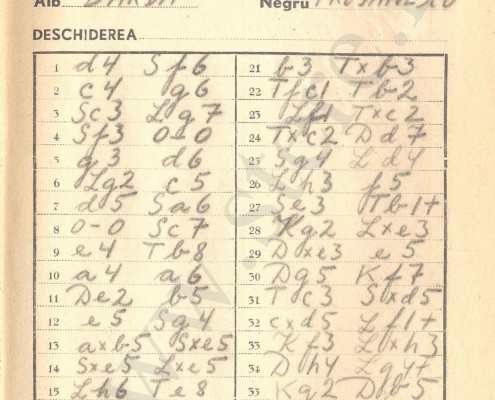 Alb Negru
DESCHIDEREA
1 d4 Sf6
2 c4 g6
3 Sc3 Lg7
4 Sf3 0-0
5 g3 d6
6 Lg2 c5
7 d5 Sa6
8 0-0 Sc7
9 e4 Tb8
10 a4 a6
11 De2 b5
12 e5 Sg4
13 axb5 Sxe5
14 Sxe5 Lxe5
15 Lh6 Te8
21 b3 Txb3
22 Tfc1 Tb2
23 Lf1 Txc2
24 Txc2 Dd7
25 Sg4 Ld4
26 Lh3 f5
27 Se3 Tb1+
28 Kg2 Lxe3
29 Dxe3 e5
30 Dg5 Kf7
31 Tc3 Sxd5
32 cxd5 Lf1+
33 Kf3 Lxh3
34 Dh4 Lg4+
35 Kg2 Db5